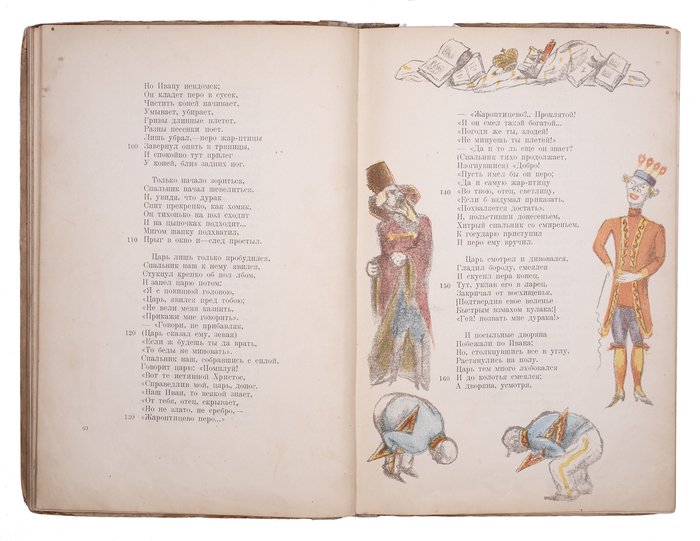 Но Ивану невдомек;
Он кладет перо в сусек,
Чистить коней начинает,
Умывает, убирает,
Гривы длинные плетет,
Разны песенки поет.
Лишь убрал,—перо жар-птицы
100 Завернул опять в тряпицы,
И спокойно тут прилег
У коней, близ задних ног.
Только начало зориться,
Спальник начал шевелиться,
И, увидя, что дурак
Спит прекрепко, как хомяк,
Он тихонько на пол сходит
И на цыпочках подходит...
Мигом шапку подхватил,
110 Прыг в окно и—след простыл.
Царь лишь только пробудился,
Спальник наш к нему явился,
Стукнул крепко об пол лбом,
И запел царю потом:
«Я с повинной головою,
«Царь, явился пред тобою;
«Не вели меня казнить,
«Прикажи мне говорить».
— «Говори, не прибавляя,
120 (Царь сказал ему, зевая)
«Если ж будешь ты да врать,
«То беды не миновать».
Спальник наш, собравшись с силой,
Говорит царю: «Помилуй!
«Вот те истинный Христос,
«Справедлив мой, царь, донос.
«Наш Иван, то всякой знает,
«От тебя, отец, скрывает,
«Но не злато, не сребро,—
130 «Жароптицево перо...»
— «Жароптицево?.. Проклятой!
«И он смел такой богатой...
«Погоди же ты, злодей!
«Не минуешь ты плетей!»
— «Да и то ль еще он знает?
(Спальник тихо продолжает,
Изогнувшися) «Добро!
«Пусть имел бы он перо;
«Да и самую жар-птицу
140 «Во твою, отец, светлицу,
«Если б вздумал приказать,
«Похваляется достать».
И, польстивши донесеньем,
Хитрый спальник со смиреньем,
К государю приступил
И перо ему вручил.
Царь смотрел и дивовался,
Гладил бороду, смеялся
И скусил пера конец.
150 Тут, уклав его в ларец,
Закричал от восхищенья,
[Подтвердив свое веленье
Быстрым взмахом кулака:]
«Гей! позвать мне дурака!»
И посыльные дворяна
Побежали по Ивана;
Но, столкнувшись все в углу,
Растянулись на полу.
Царь тем много любовался
160 И до колотья смеялся;
А дворяна, усмотря,